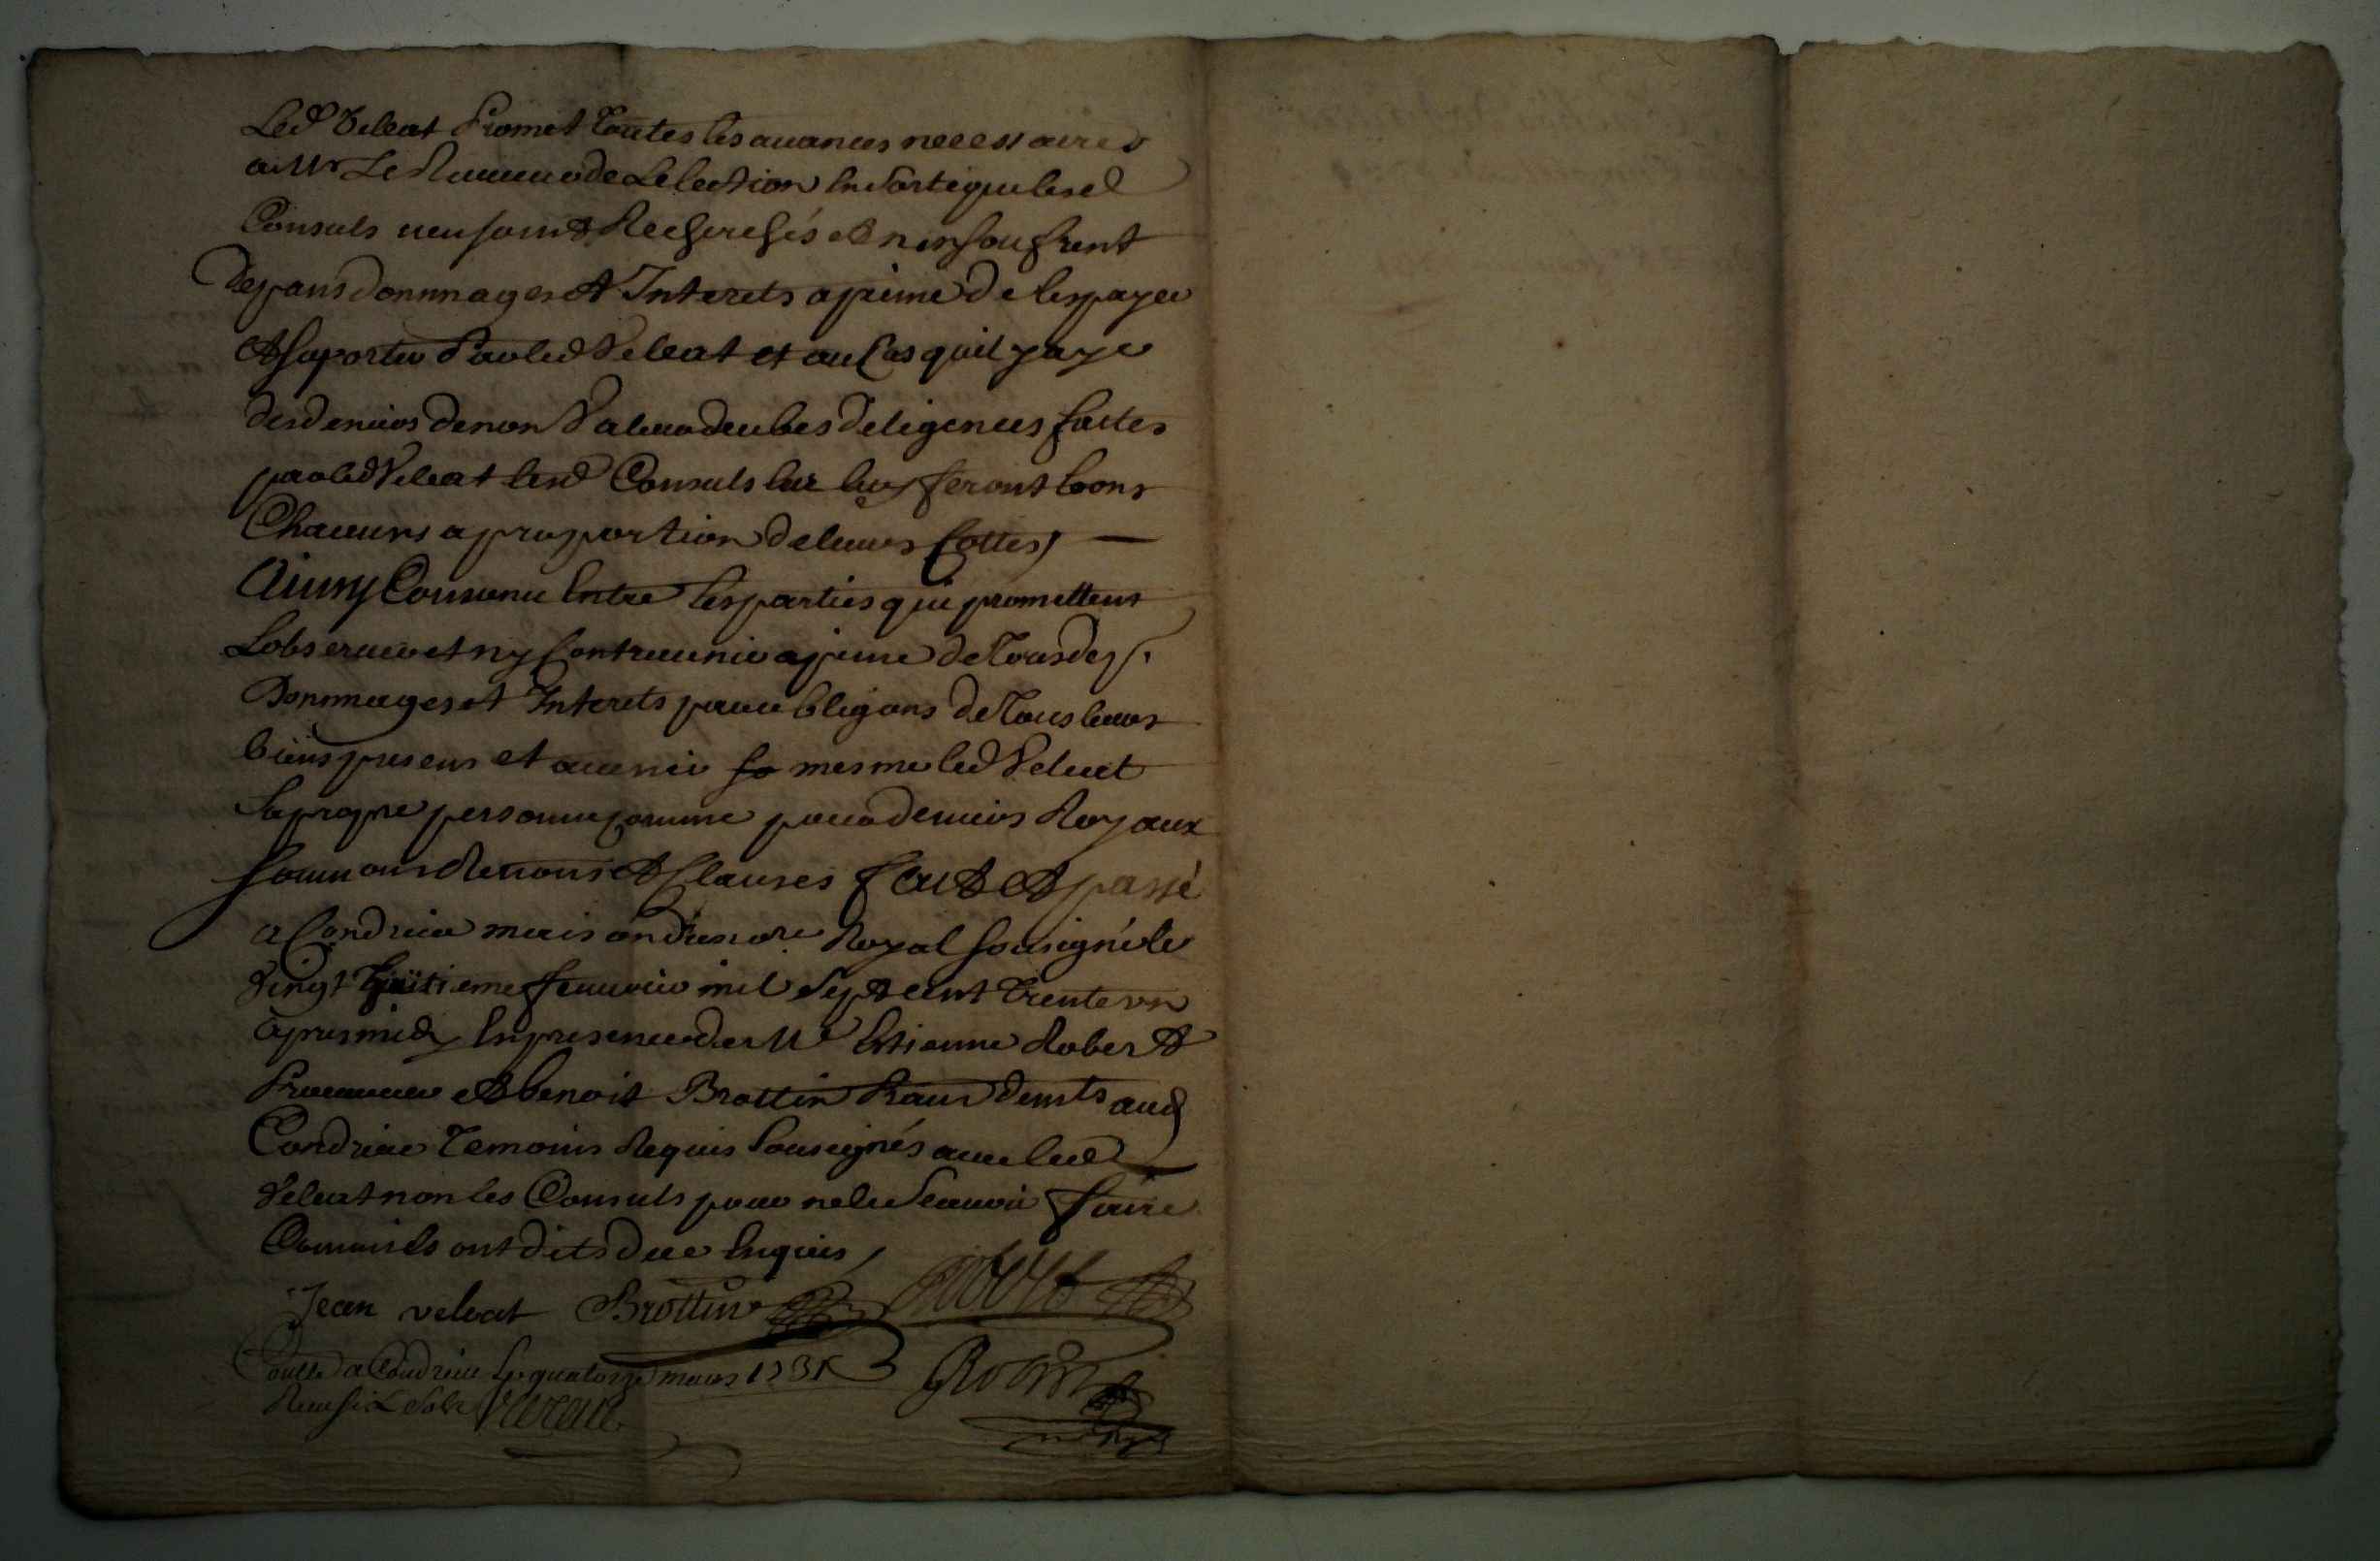 Led Veleat Promet Toutes les auances necessaires
a Mr Le Receueur de Lelection En Sorte que lesd
Consuls nen soint Recherchés et nen soufrent
depans dommages et Interets a peine de les payer
et suporter Par led Veleat et au Cas quil y aye
des deniers de non Valeur deubes deligences faites
par led Veleat lesd Consuls luy feront bons
Chacuns a proportion de leurs Cottes
Ainsy Conuenu Entre les parties qui promettent
Lobseruer et ny Contreuenir a peine de Tous dep.
Dommages et Interets par obligaons de Tous leurs
biens presens et auenir mesme led Veleat
sa propre personne comme pour deniers Royaux
soumons Renons et Clauses fait et passé
a Condrieu maison du nore Royal sousigné le
vingt huitieme feurier mil Sept cent Trente vn
apres midy En presence de Me Estienne Robert
Procureur et benoit Brottin Praud demts aud
Condrieu Temoins Requis Sousignés auec led
Veleat non les Consuls pour ne le Scauoir faire
Comme ils ont dits de ce Enquis
Jean veleat Brottin Robert
Conllé a Condrieu Le quatorze mars 1731
Receu six Sols